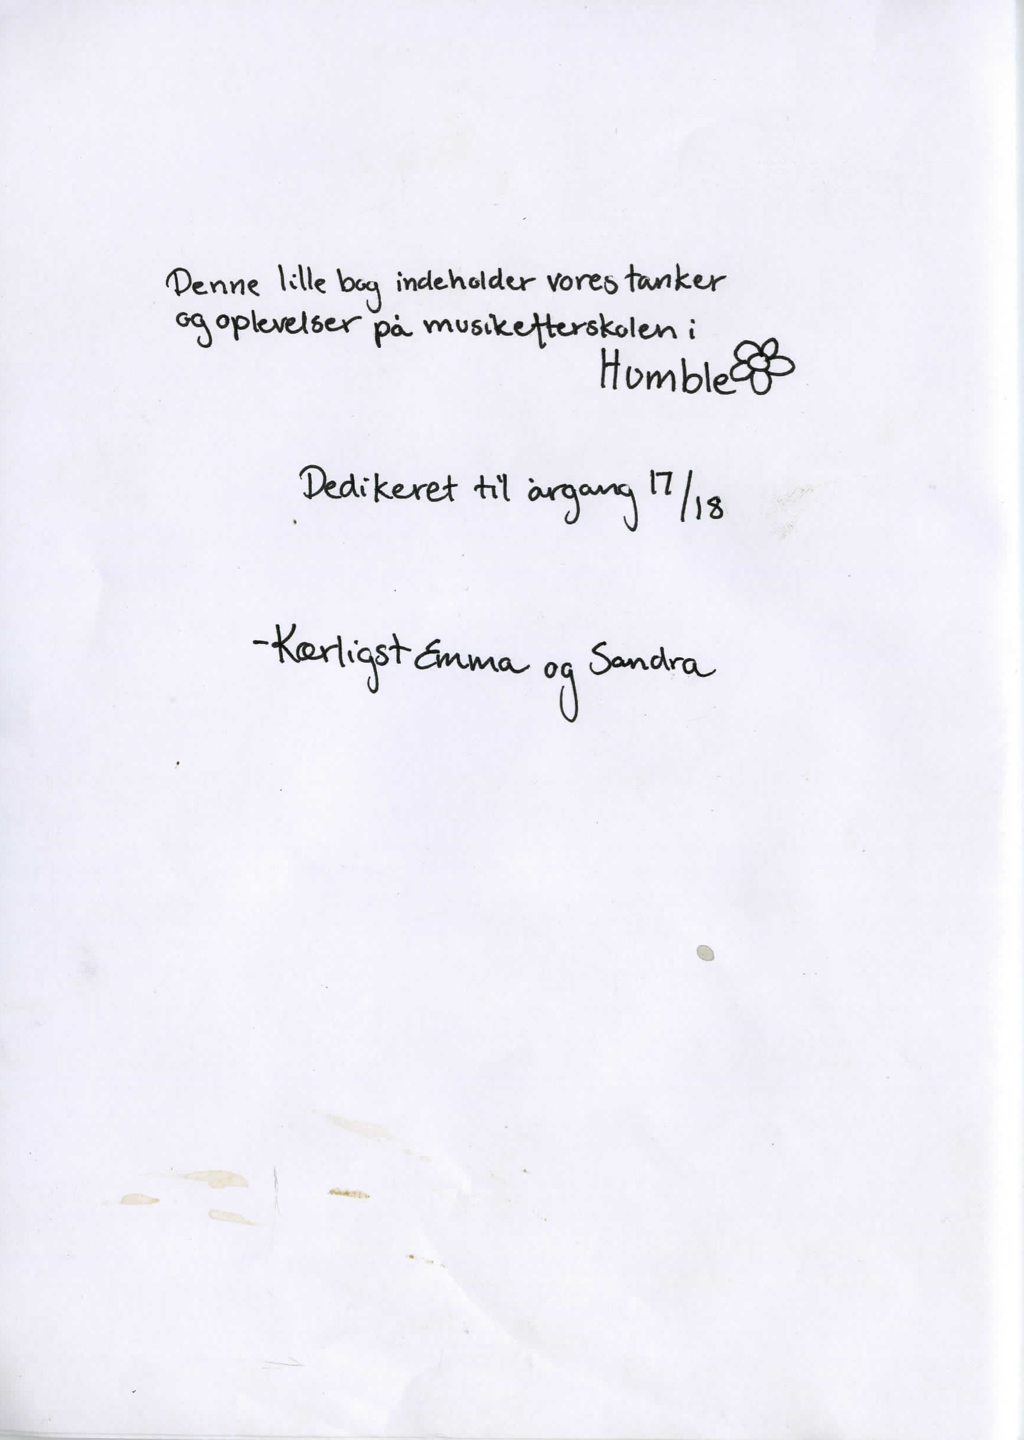 Denne lille bog indeholder vores tanker
og oplevelser på musikefterskolen i
Humble
Dedikeret til årgang 17/18
-Kærligst Emma og Sandra